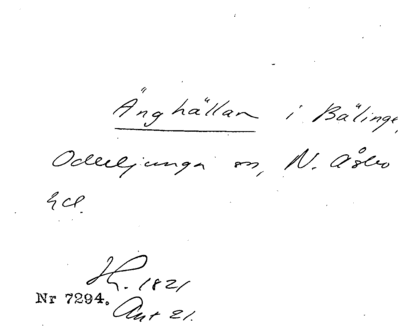 Änghällan i Bälinge,
Oderljunga sn, N. Åsbo
hd.
H. 1821
Nr 7294.
Ant 21.